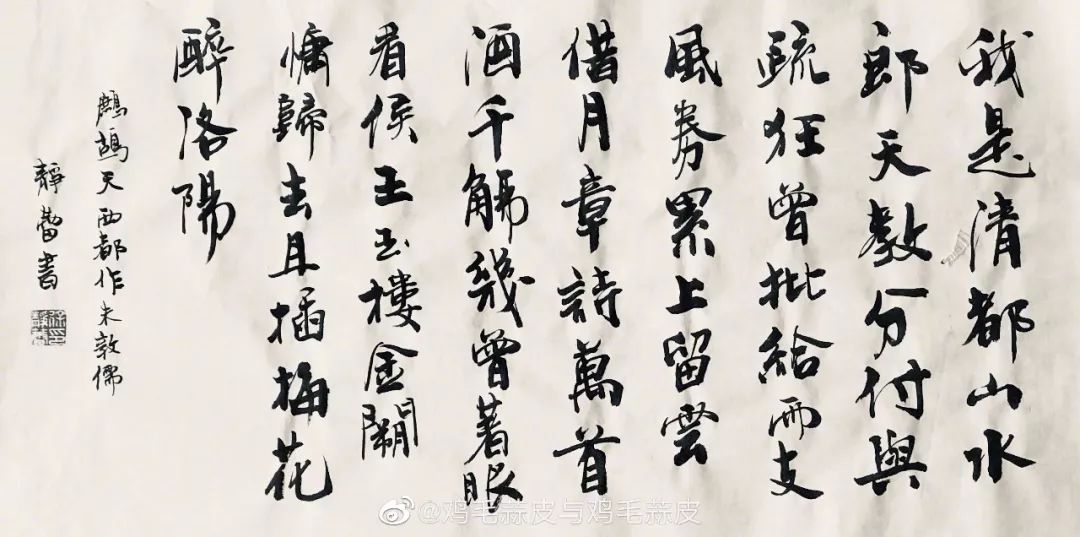 我是清都山水
郎天教分付與
疏狂曾批給雨支
風券累上留雲
借月章詩萬首
酒千觴幾曾著眼
看侯王玉樓金闕
慵歸去且插梅花
醉洛陽
鷓鴣天 西都作 朱敦儒
靜蕾書
@鸡毛蒜皮与鸡毛蒜皮